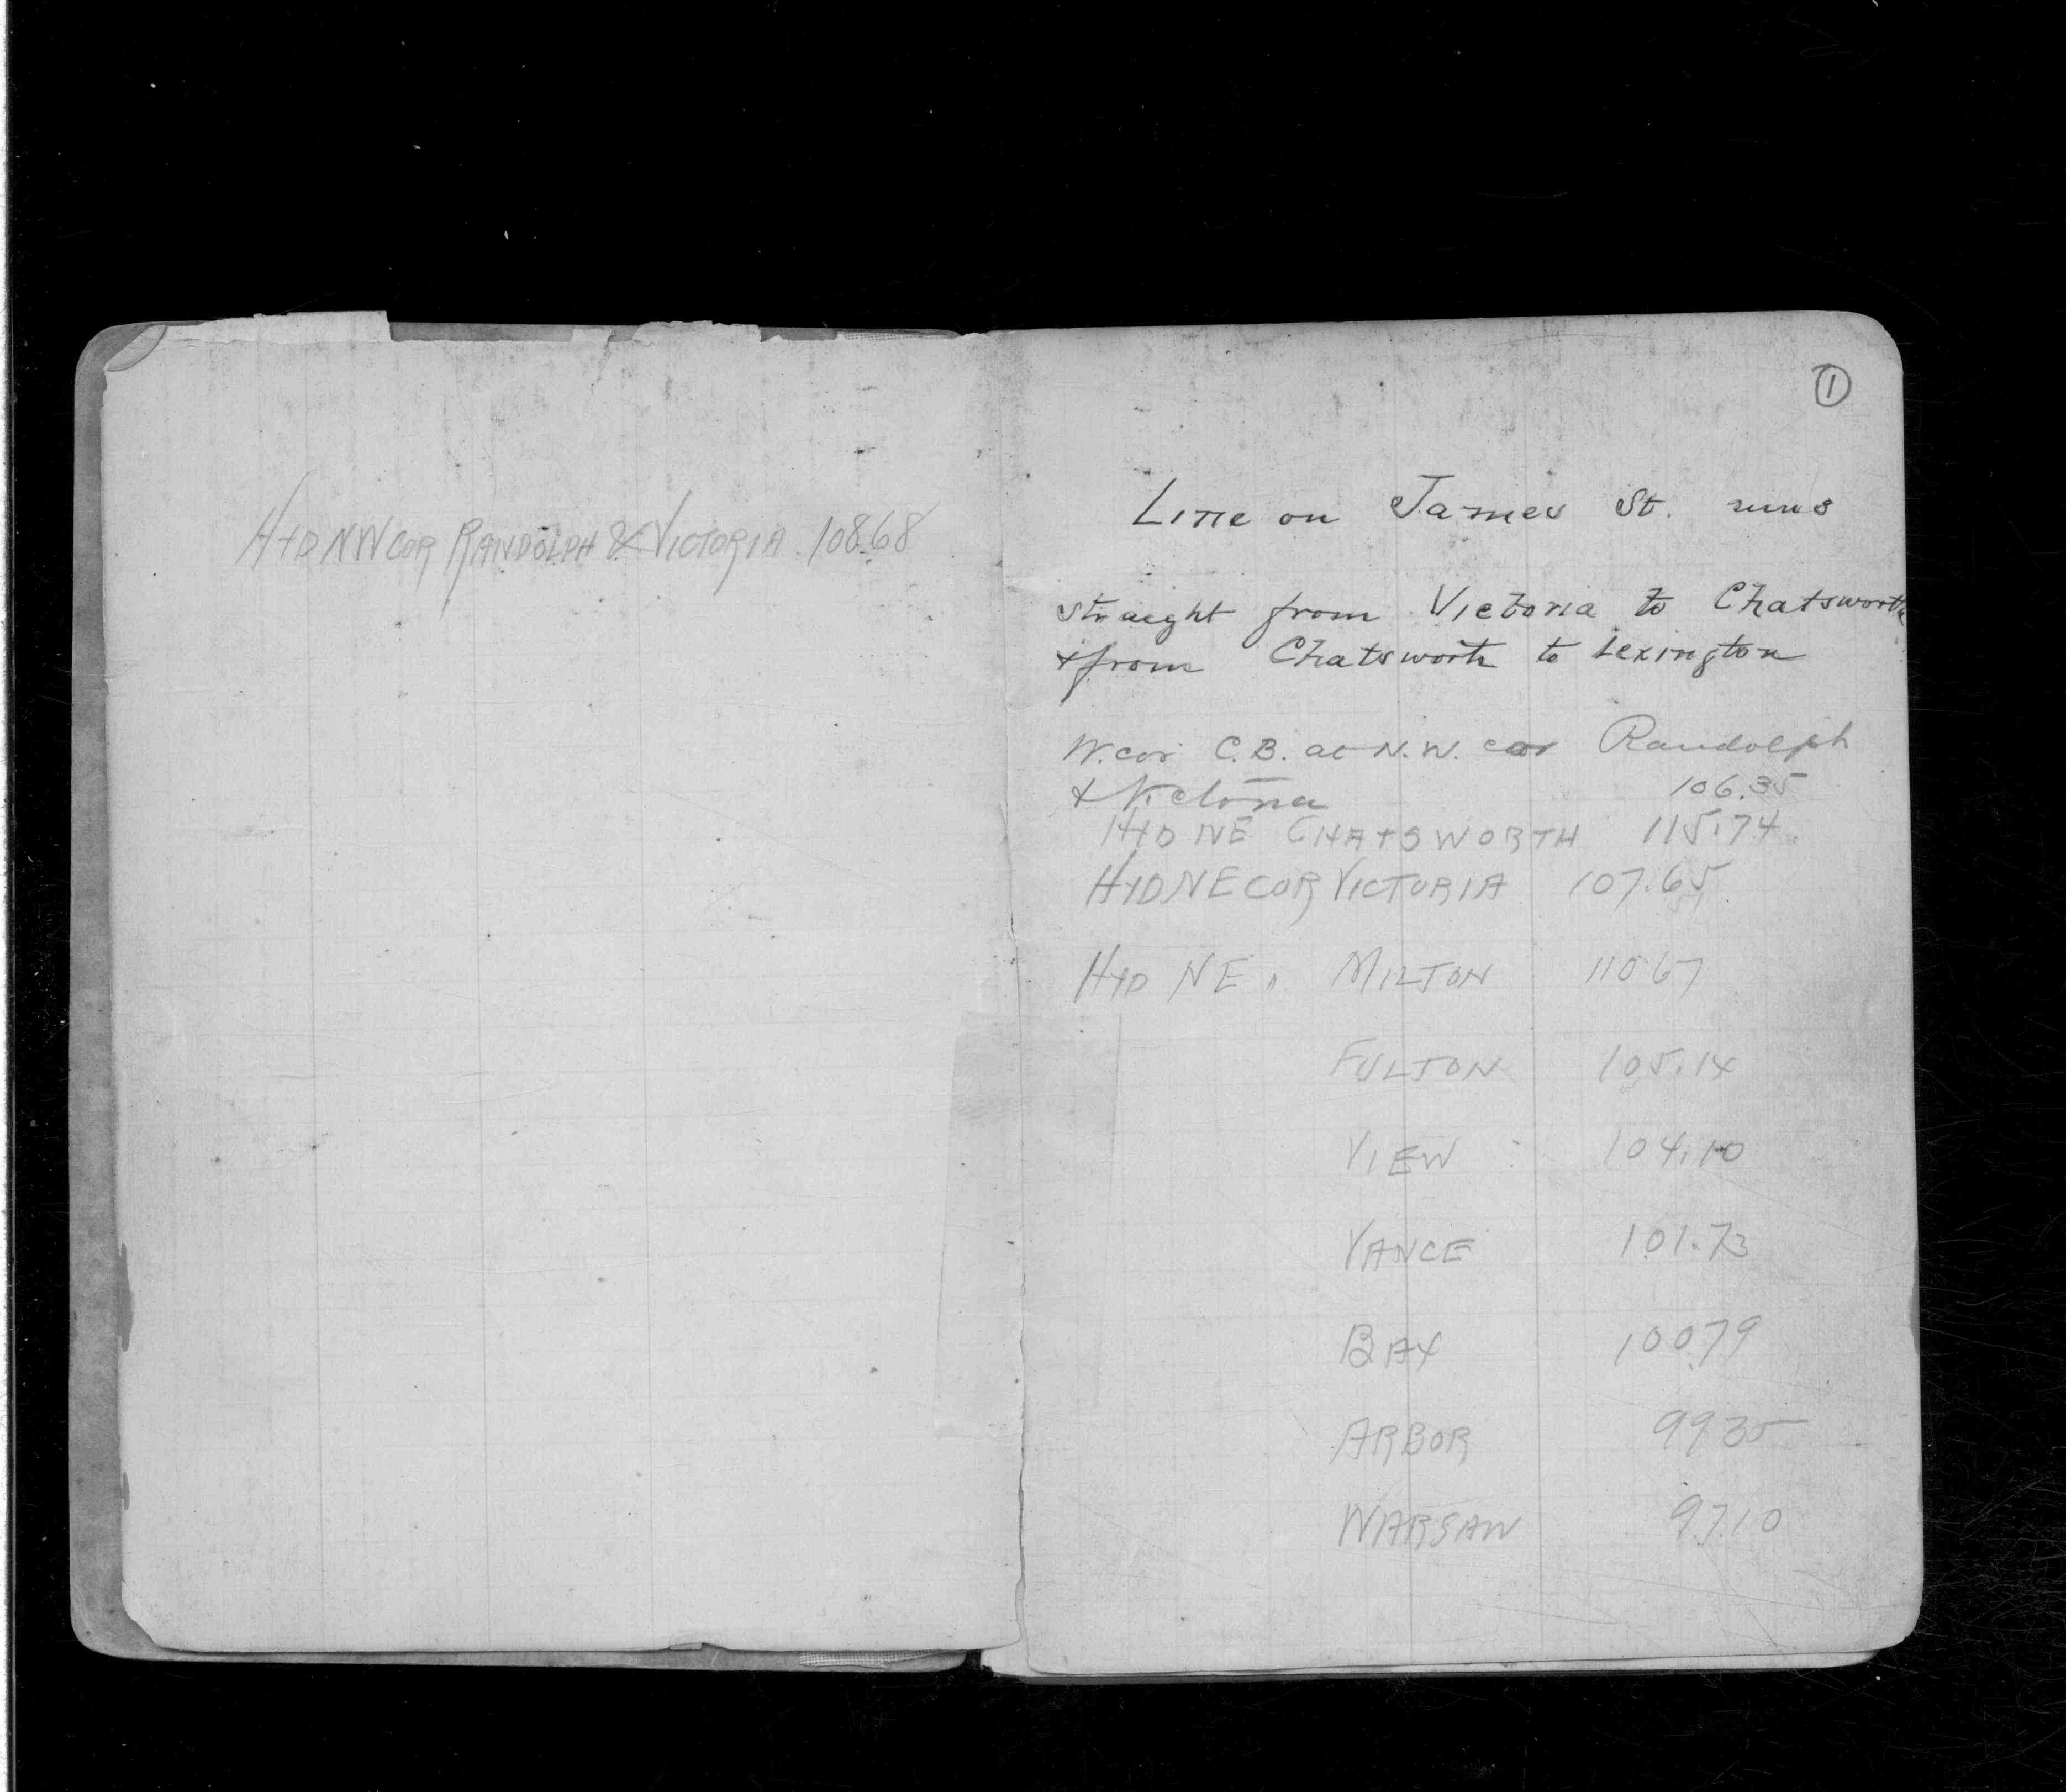 HYD NW COR RANDOLPH & VICTORIA 108.68
1
Line on James St. runs
straight from Victoria to Chatsworth
& from Chatsworth to Lexington
W. cor C.B. at N.W. cor Randolph
& Victoria 106.35
HYD NE CHATSWORTH 115.74
HYD NE COR VICTORIA 107.65
HYD NE " MILTON 110.67
FULTON 105.14
VIEW 104.10
VANCE 101.73
BAY 100.79
ARBOR 99 35
WARSAW 97.10